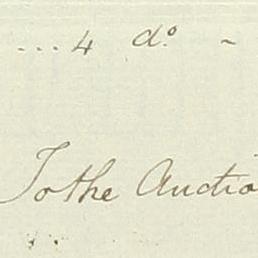 ...4 do. -
To the Auctio